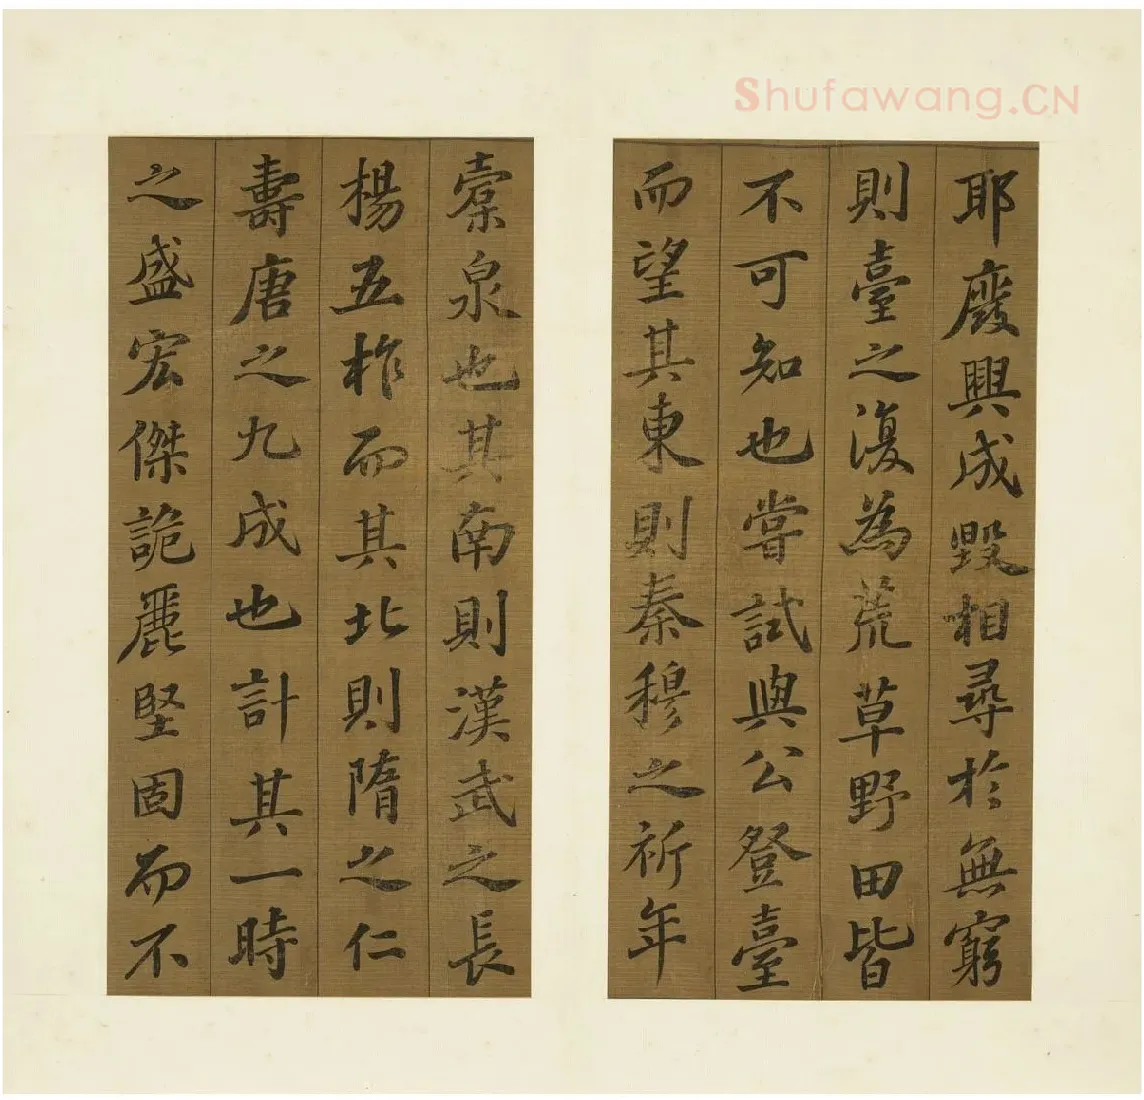 Shufawang.CN
耶廢興成毀相尋於無窮
則臺之復為荒草野田皆
不可知也嘗試與公登臺
而望其東則秦穆之祈年
橐泉也其南則漢武之長
楊五柞而其北則隋之仁
壽唐之九成也計其一時
之盛宏傑詭麗堅固而不